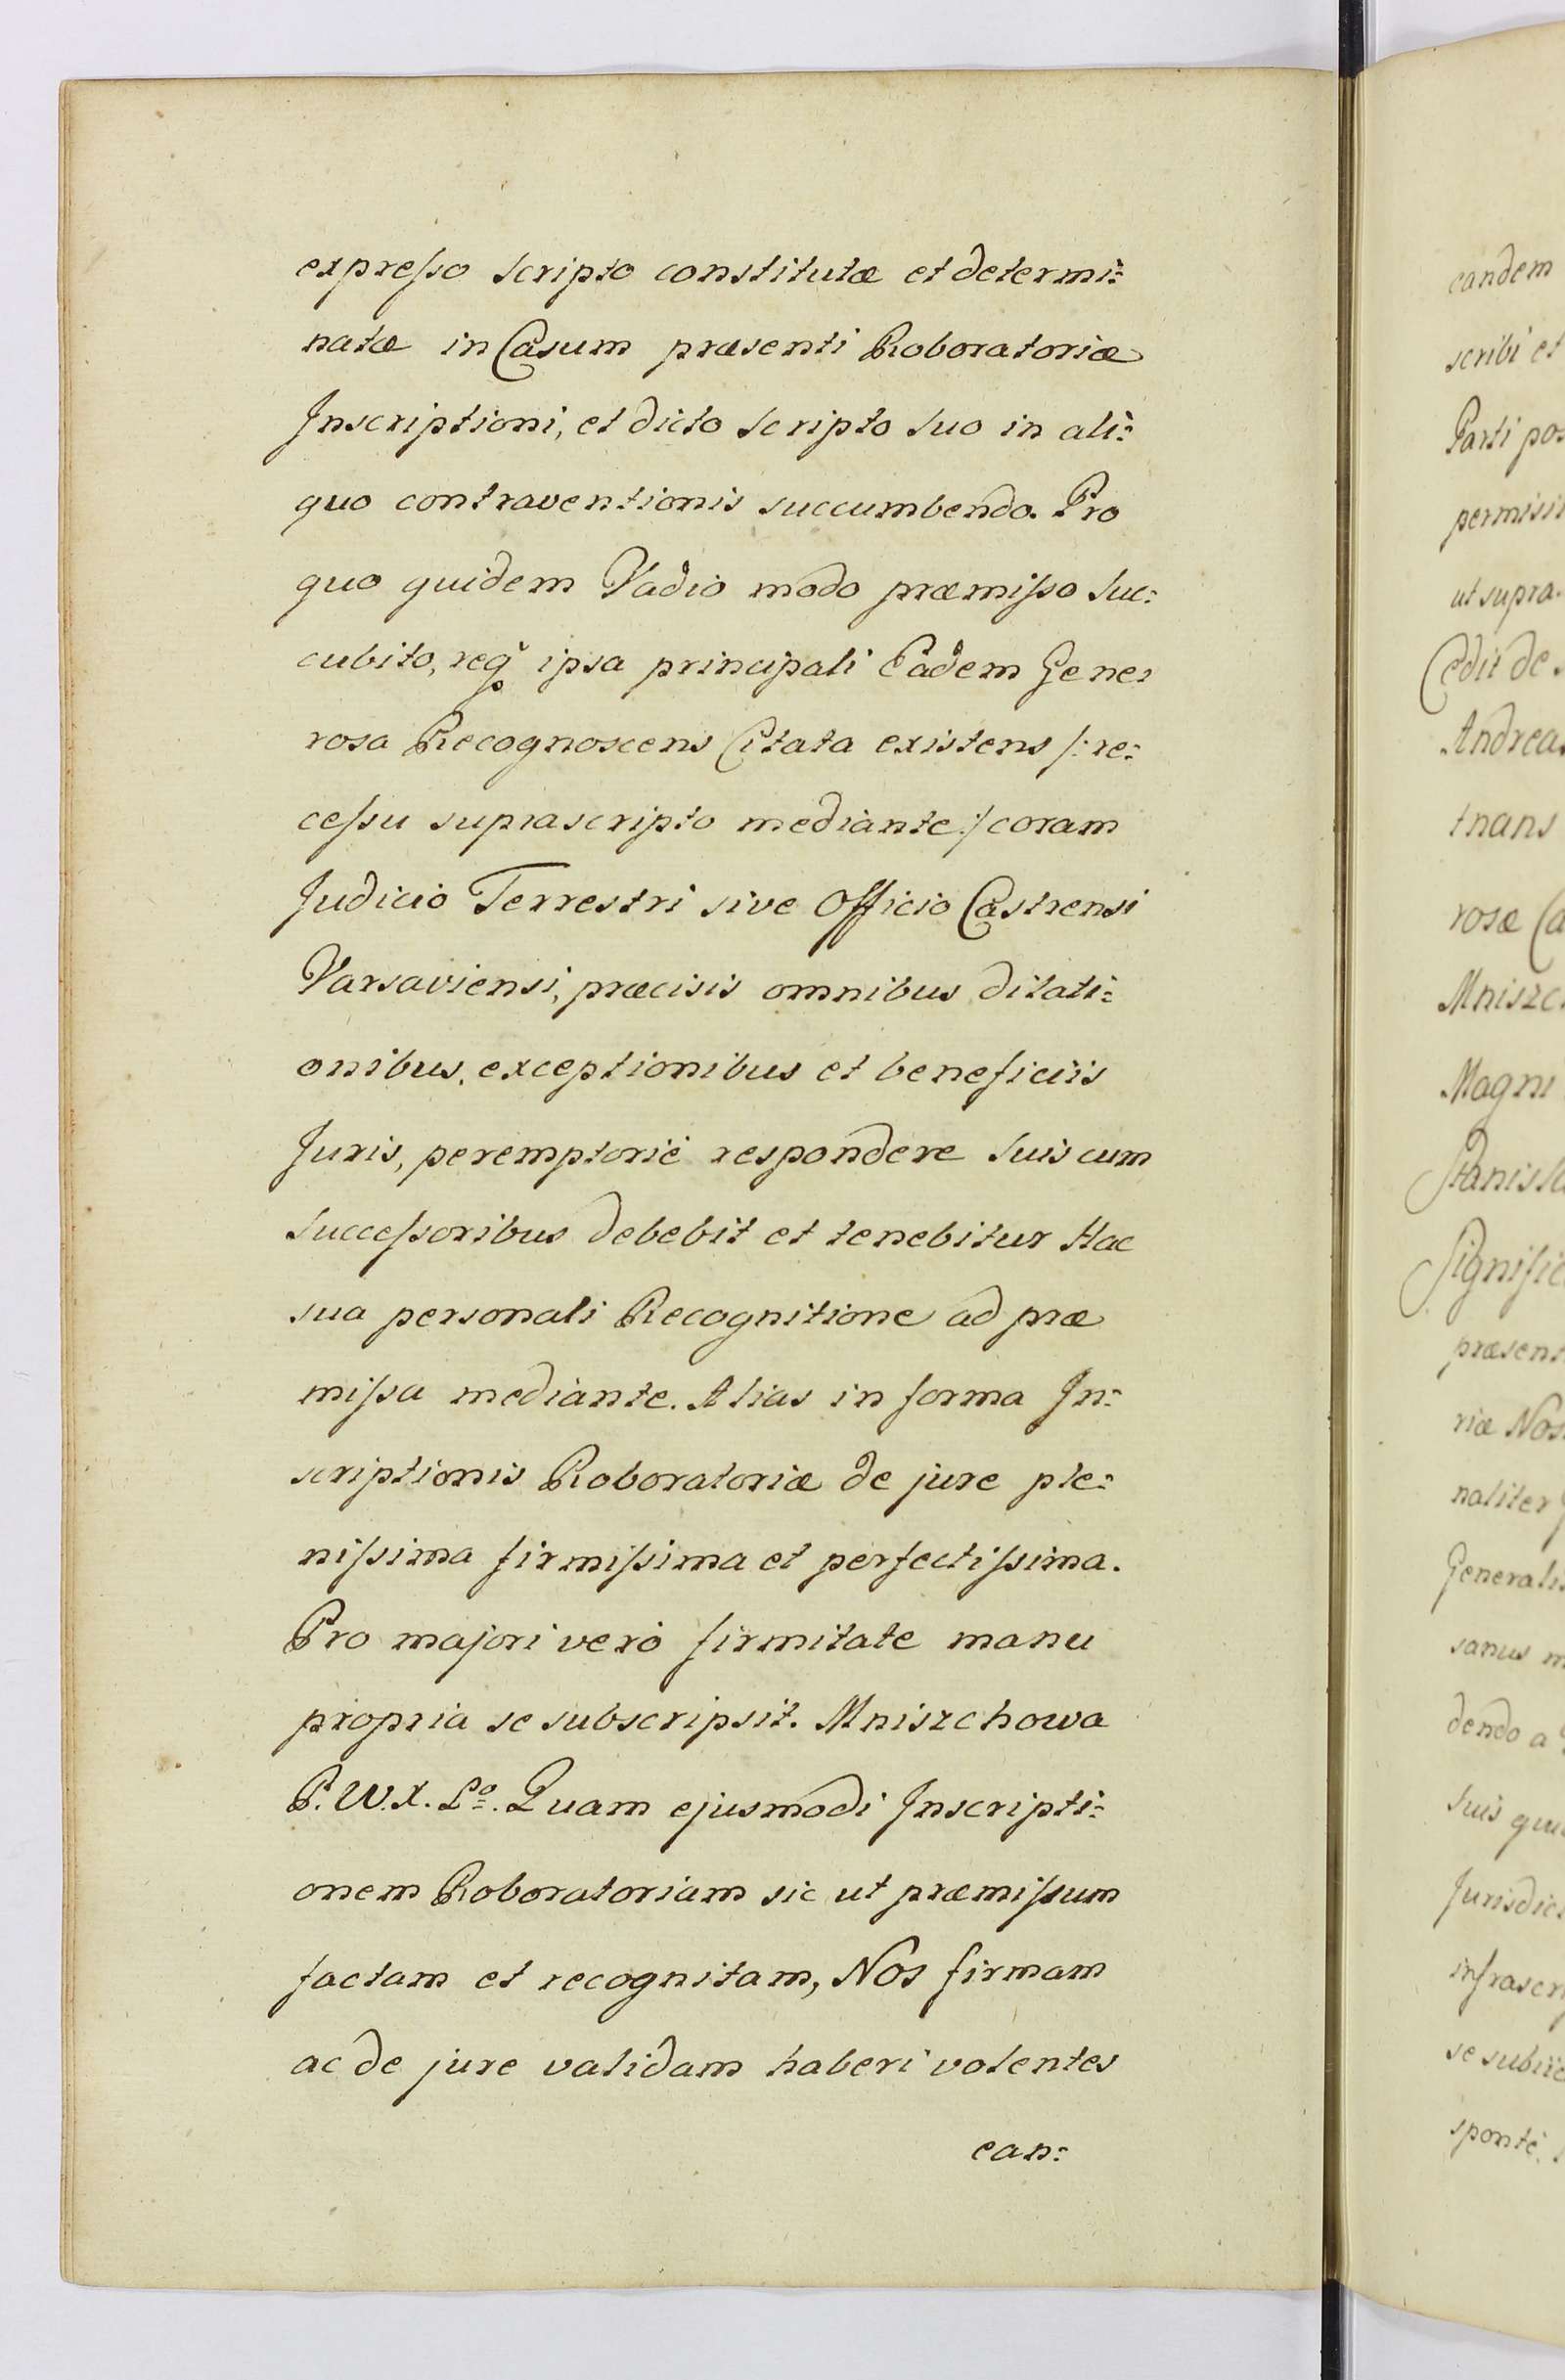 expreſso scripto constitutæ et determi=
natæ in Casum præsenti Roboratoriæ
Inscriptioni, et dicto scripto suo in ali=
quo contraventionis succumbendo. Pro
quo quidem Vadio modo præmiſso suc=
cubito, reqꝫ ipsa principali Eadem Gene=
rosa Recognoscens Citata existens /: re=
ceſsu suprascripto mediante :/ coram
Judicio Terrestri sive Officio Castrensi
Varsaviensi, præcisis omnibus dilati=
onibus, exceptionibus et beneficiis
Juris, peremptorië respondere suis cum
succeſsoribus debebit et tenebitur Hac
sua personali Recognitione ad præ
miſsa mediante. Alias in forma In=
scriptionis Roboratoriæ de jure ple=
niſsima firmiſsima et perfectiſsima.
Pro majori verò firmitate manu
propria se subscripsit. Mniszchowa
P. W. X. Lº. Quam ejusmodi Inscripti=
onem Roboratoriam sic ut præmiſsum
factam et recognitam, Nos firmam
ac de jure validam haberi volentes
ean=
eandem
scribi et
Parti po=
permisi
ut supra.
Cedit de
Andrea
tnans
rosæ Ca
Mniszc
Magni
Stanisla
Signific
præsent
riæ Nos
naliter
Generali
sanus m
dendo a
suis qui
Jurisdic
infrascri
se subiic
spontè